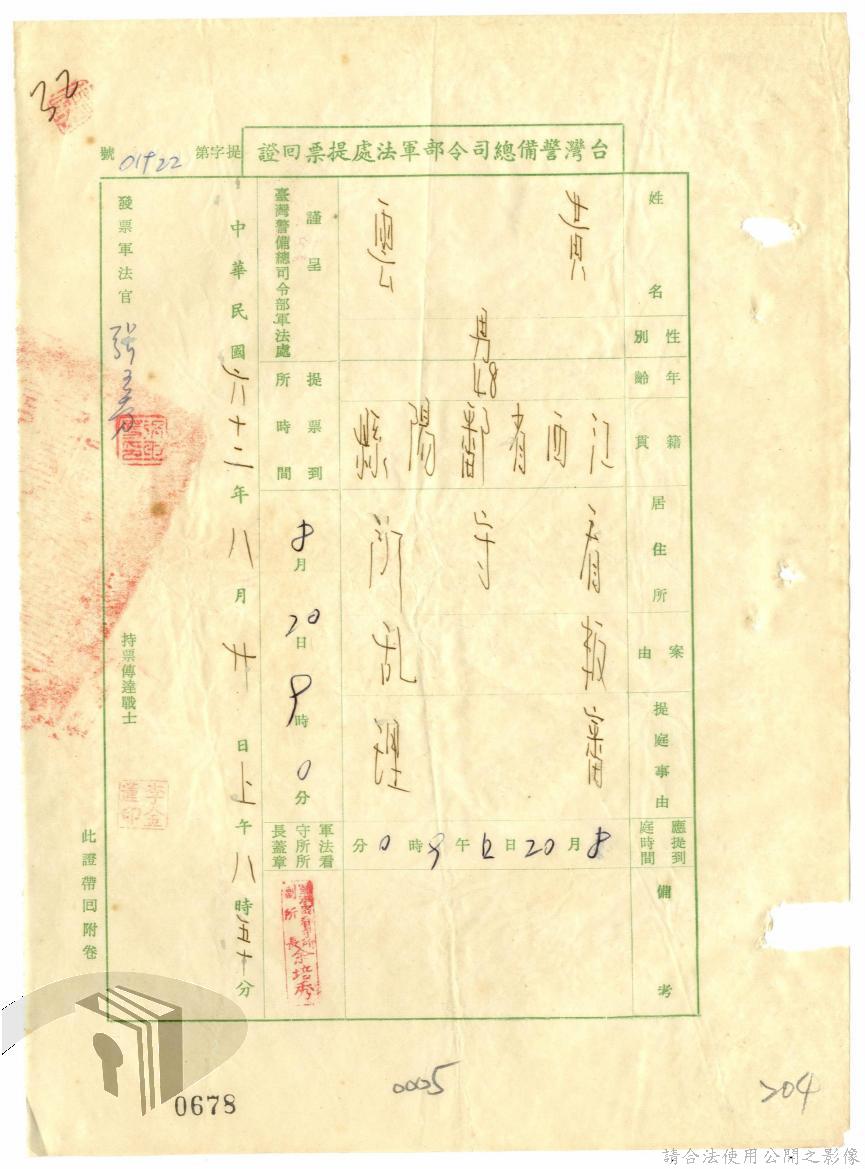 台灣警備總司令部軍法處提票回證
提字第01922號
姓名
黃雲
性別
男
年齡
48
籍貫
江西省鄱陽縣
居住所
看守所
案由
叛乱
提庭事由
審理
應提到庭時間
8月20日上午9時0分
備考
謹呈
臺灣警備總司令部軍法處
提票到所時間
8月20日8時0分
軍法看守所所長蓋章
中華民國六十二年八月廿日上午八時五十分
發票軍法官
持票傳達戰士
李金
此證帶回附卷
0005
204
0678
請合法使用公開之影像